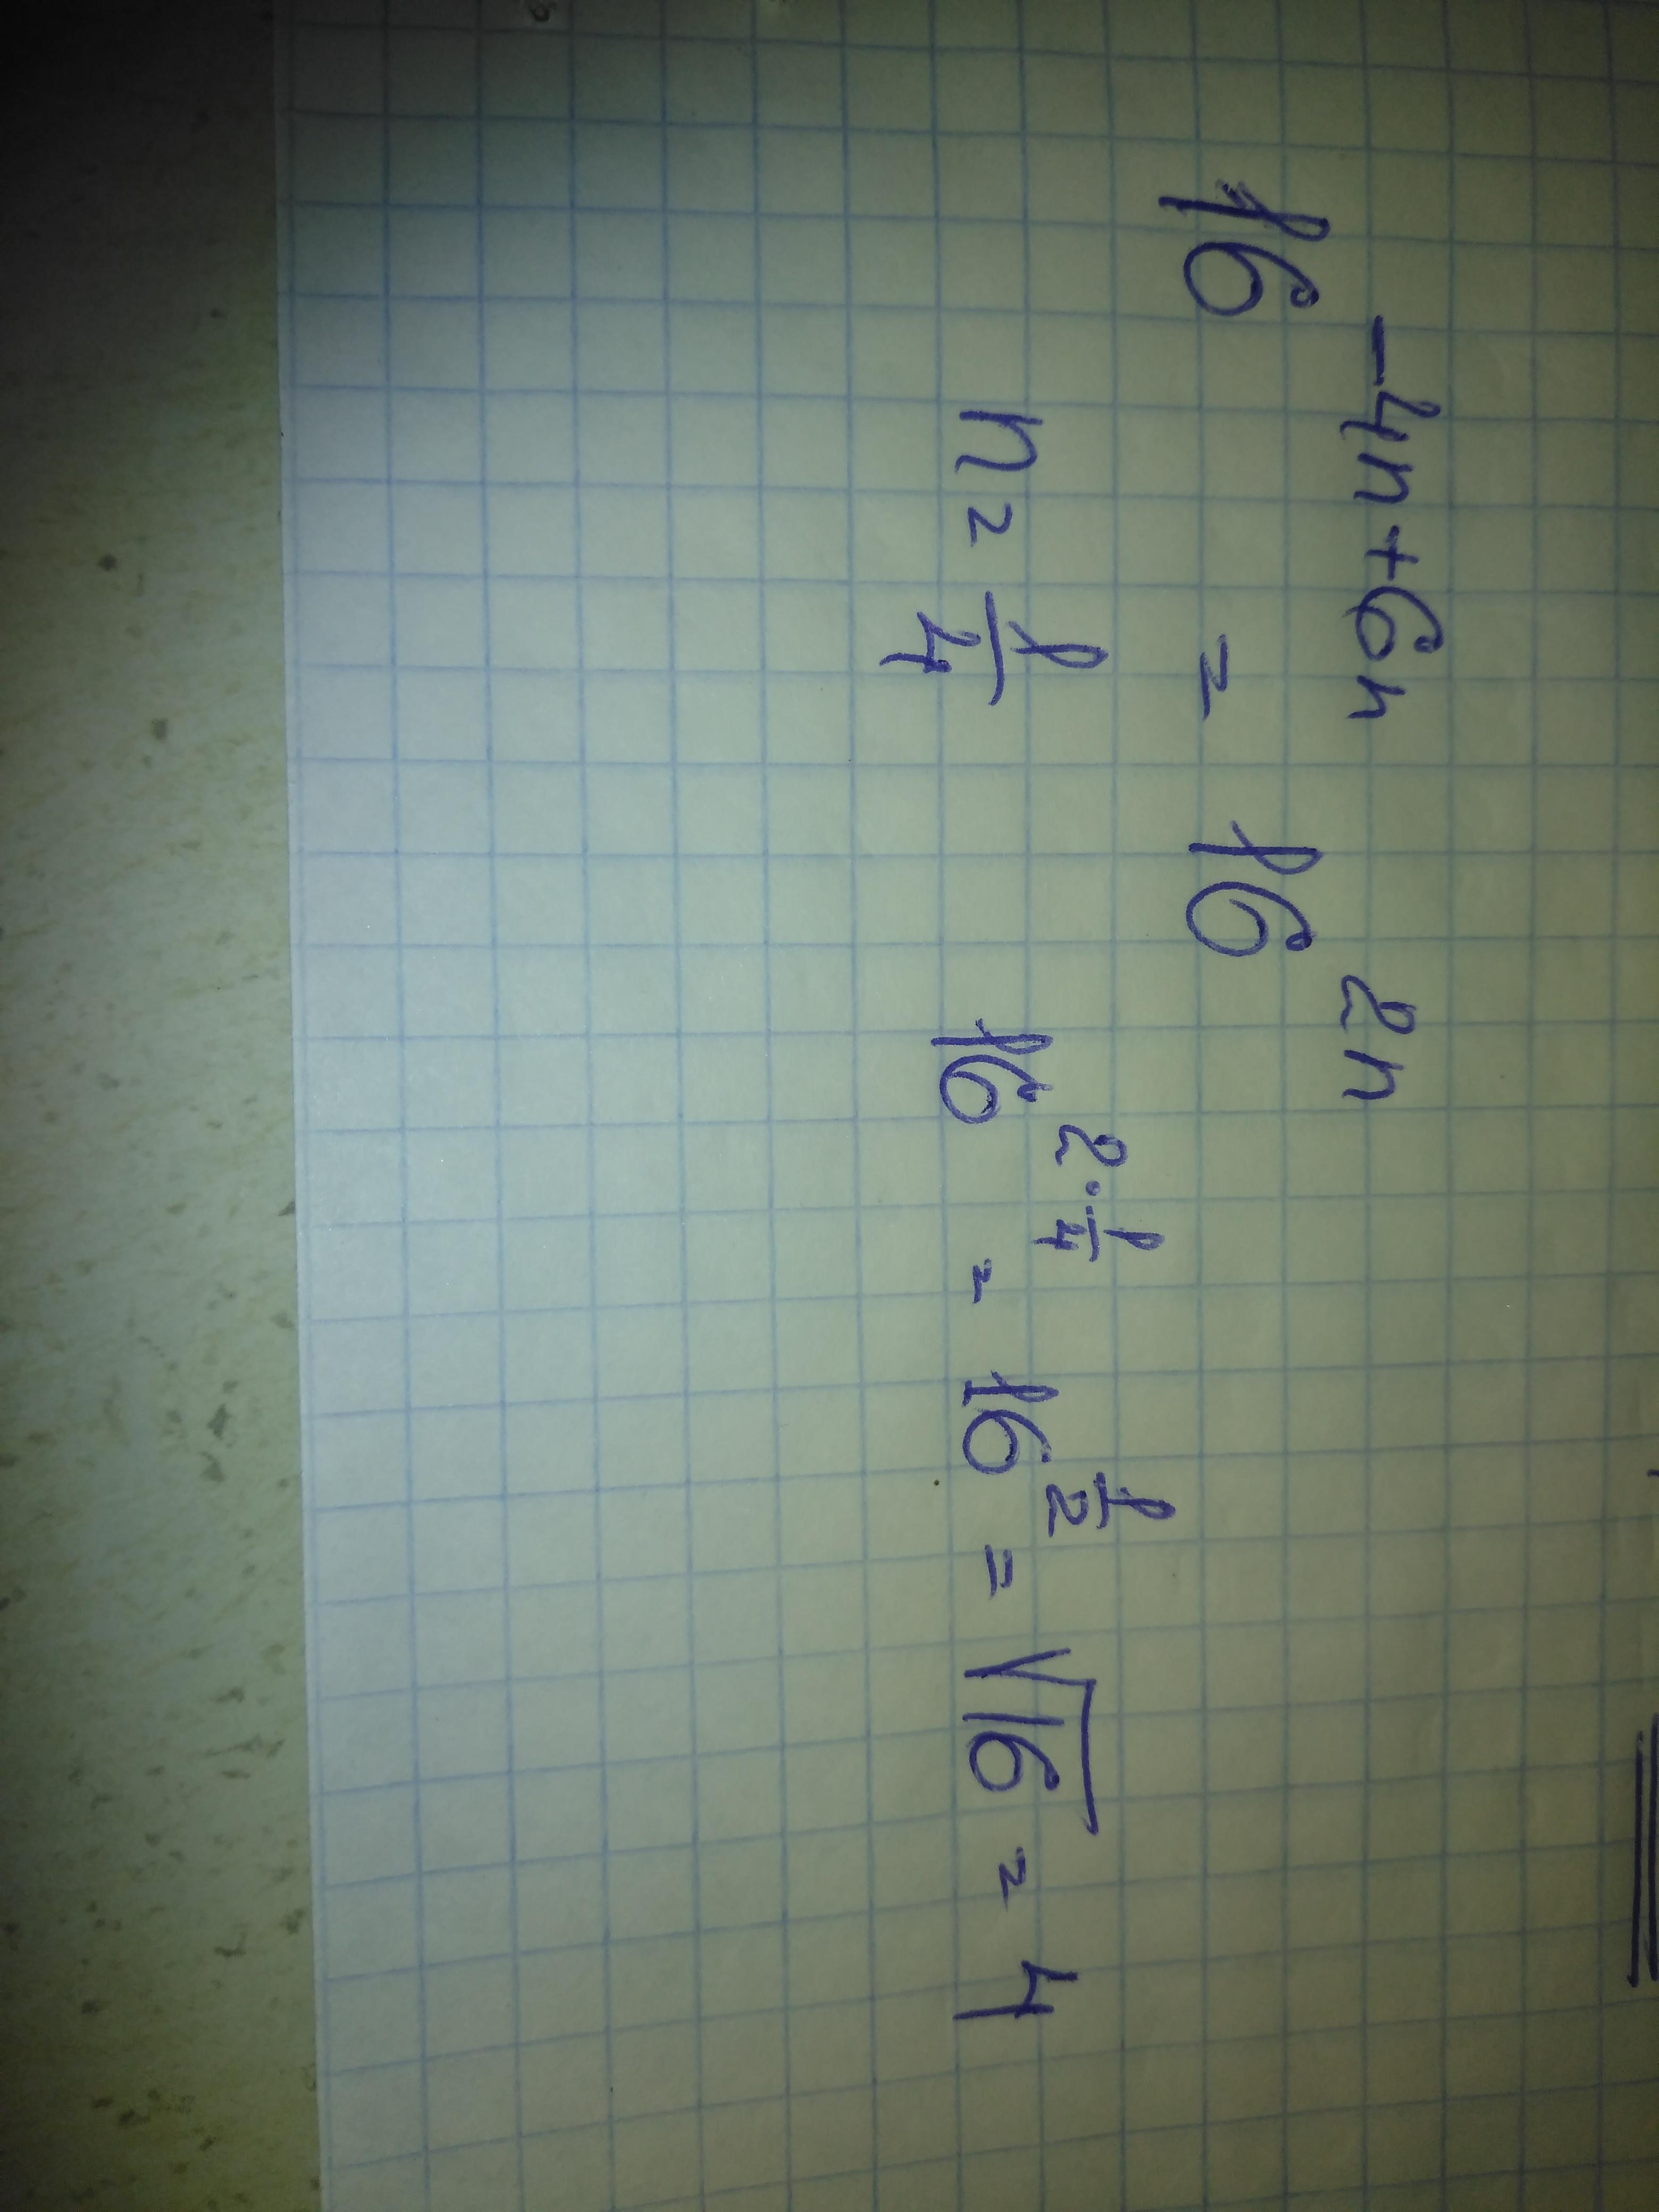 16^{-4n+6n} = 16^{2n}
n = \frac{1}{4} 16^{2 \cdot \frac{1}{4}} = 16^{\frac{1}{2}} = \sqrt{16} = 4